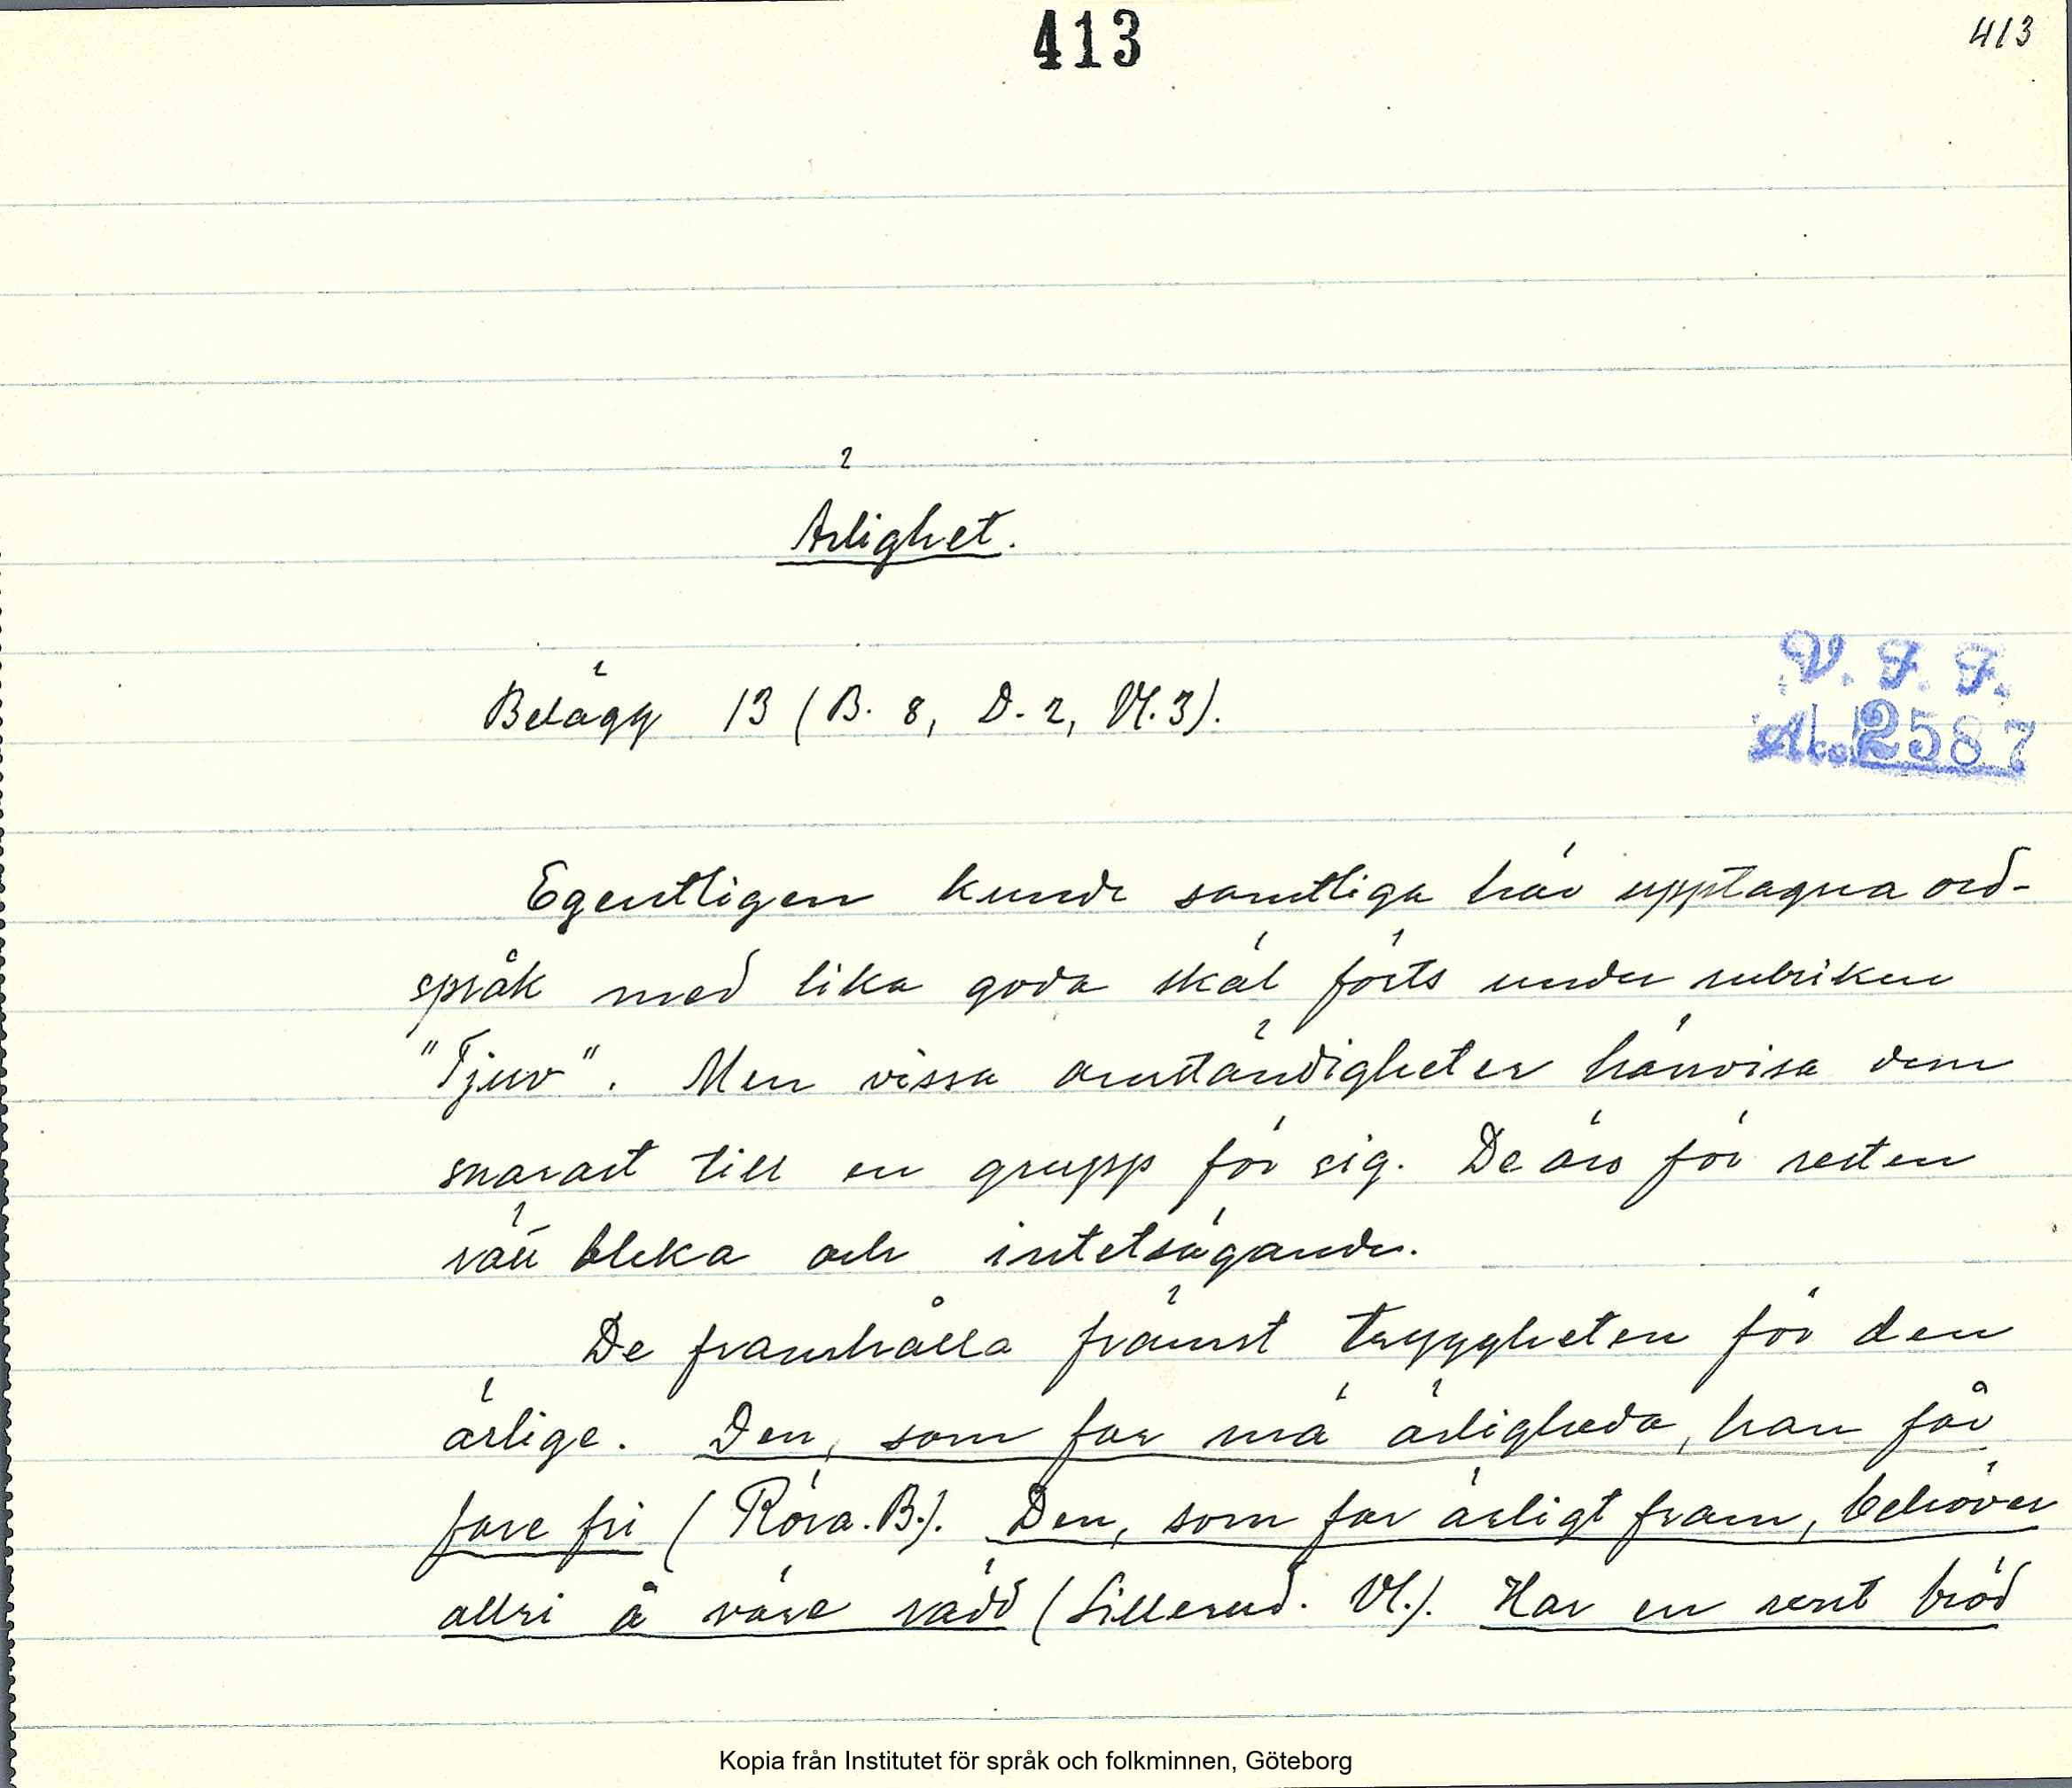 413
413
Ärlighet.
Belägg 13 (B. 8, D. 2, Vl. 3).
V. F. F.
Acc. 2587
Egentligen kunde samtliga här upptagna ord-
språk med lika goda skäl förts under rubriken
"Tjuv". Men vissa omständigheter hänvisa dem
snarast till en grupp för sig. De äro för resten
rätt bleka och intetsägande.
De framhålla främst tryggheten för den
ärlige. Den, som far mä ärligheda, han får
fare fri (Röra. B.). Den, som far ärligt fram, behöver
allri å väre rädd (Sillerud. Vl.). Har en rent bröd
Kopia från Institutet för språk och folkminnen, Göteborg